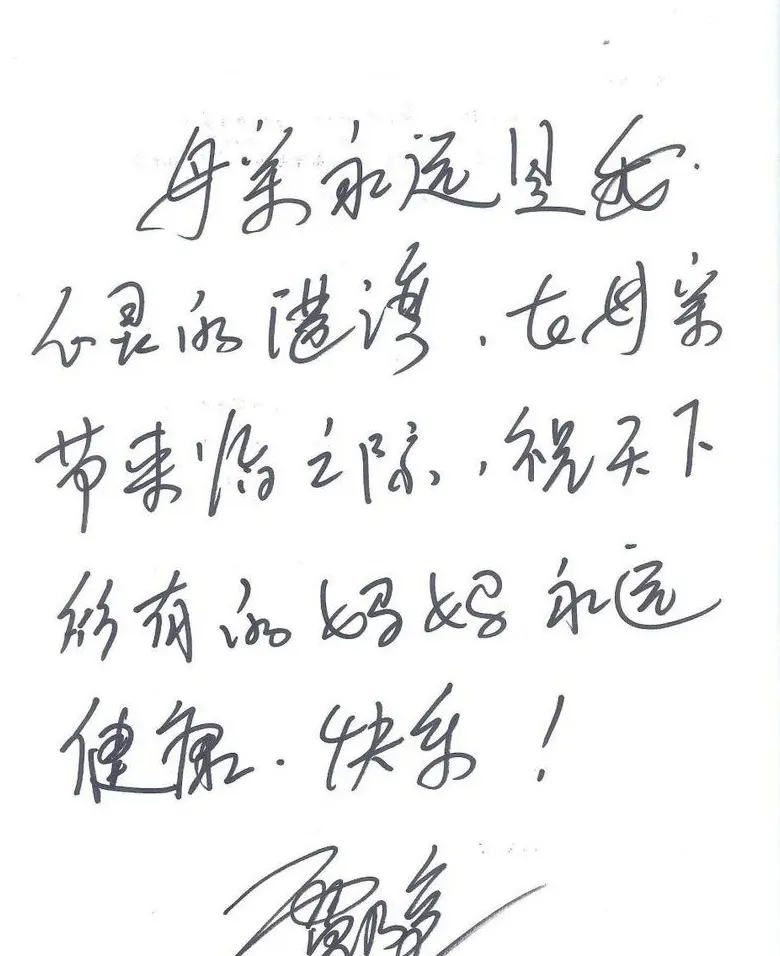 母亲永远是我
心灵的港湾，在母亲
节来临之际，祝天下
所有的妈妈永远
健康．快乐！